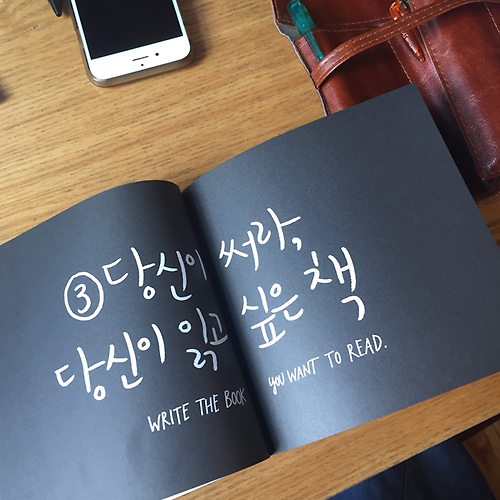 ③ 당신이 써라,
당신이 읽고 싶은 책
WRITE THE BOOK YOU WANT TO READ.